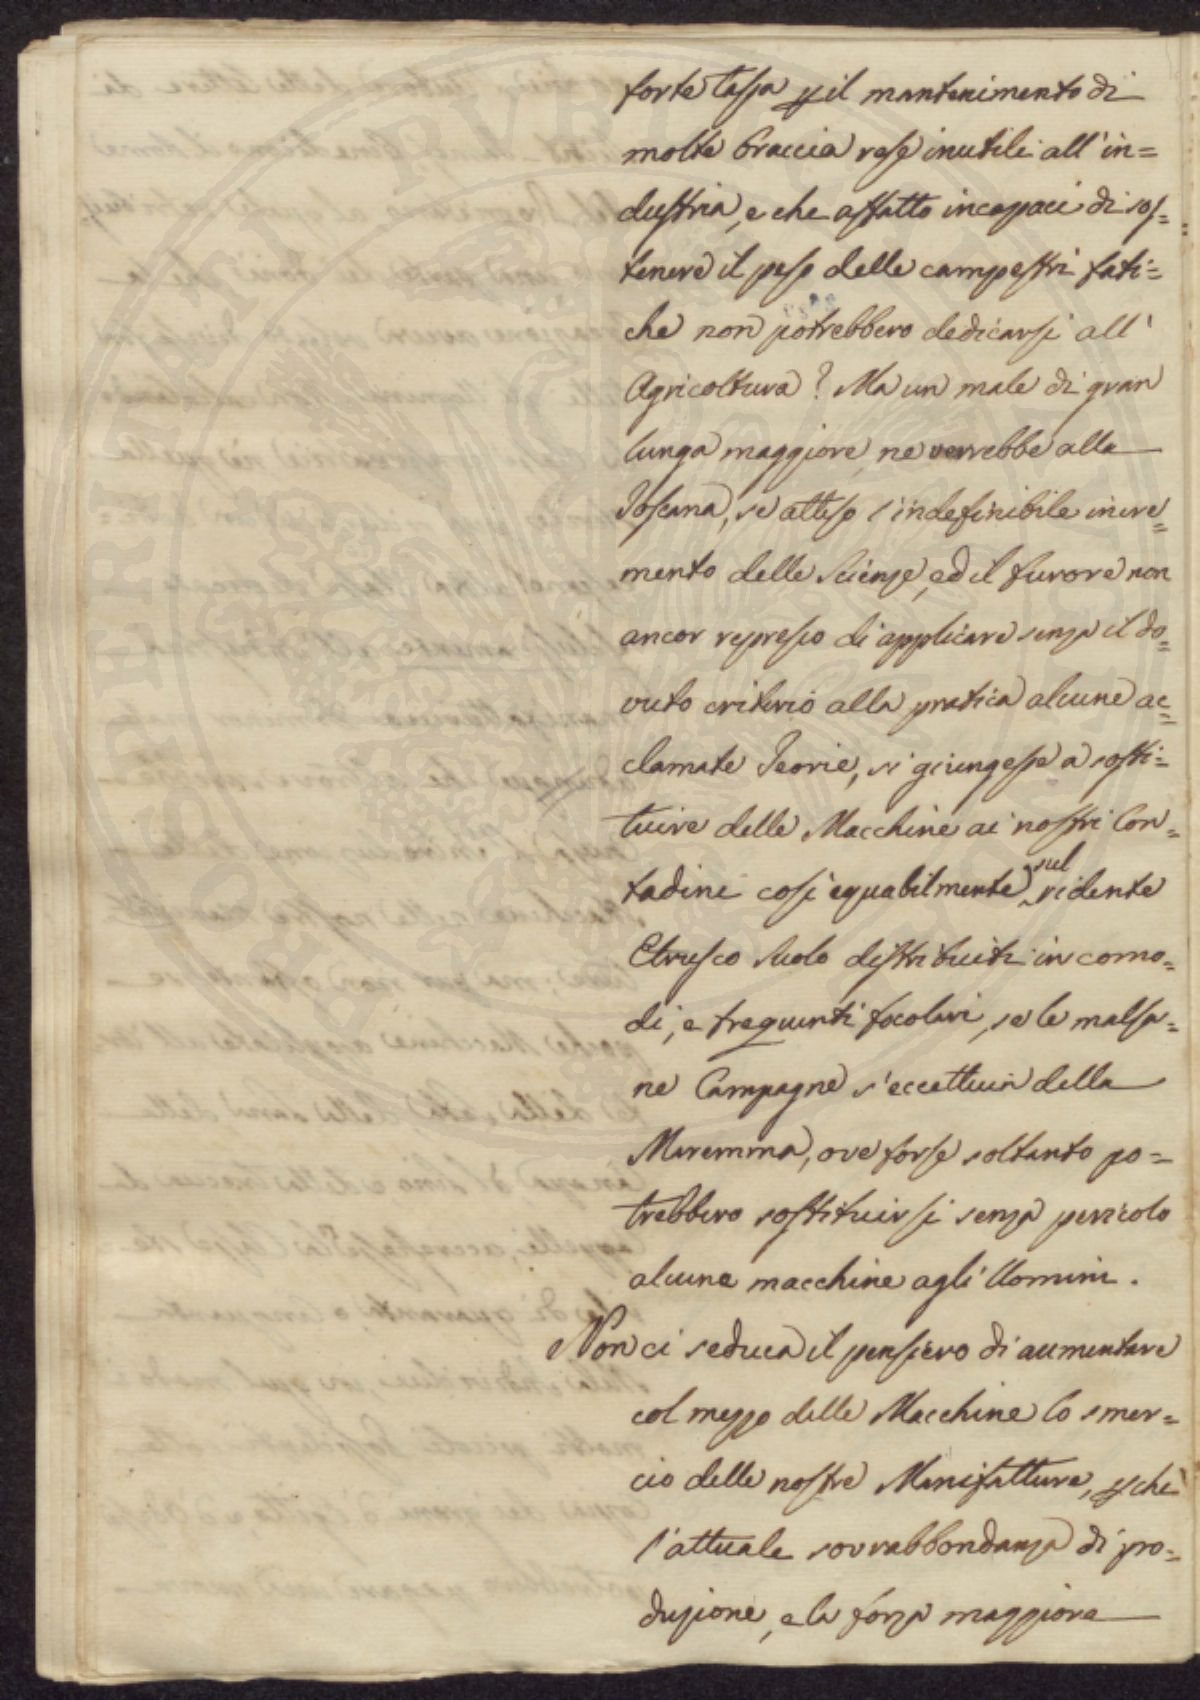 forte tassa p il mantenimento di
molte braccia rese inutili all'in=
dustria, e che affatto incapaci di sos=
tenere il peso delle campestri fati=
che non potrebbero dedicarsi all'
Agricoltura? Ma un male di gran
lunga maggiore ne verrebbe alla
Toscana, se atteso l'indefinibile incre=
mento delle Scienze, ed il furore non
ancor represso di applicare senza il do=
vuto criterio alla pratica alcune ac=
clamate Teorie, si giungesse a sosti=
tuire delle Macchine ai nostri Con=
tadini così equabilmente sul ridente
Etrusco Suolo distribuiti in como=
di, e frequenti focolari, se le malsa=
ne Campagne s'eccettuin della
Maremma, ove forse soltanto po=
trebbero sostituirsi senza pericolo
alcune macchine agli Uomini.
Non ci seduca il pensiero di aumentare
col mezzo delle Macchine lo smer=
cio delle nostre Manifatture, pchè
l'attuale sovrabbondanza di pro=
duzione, e la forza maggiore
PROSPERITATI PVBLICAE